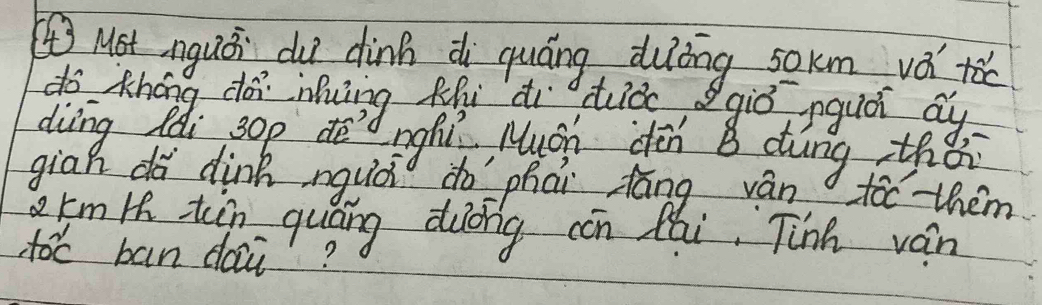 ④ Một người dự định đi quãng đường 50km với tốc
độ không đổi nhưng khi đi được 2 giờ người ấy
dừng lại 30p để nghỉ. Muốn đến B đúng thời
gian đã định người đó phải tăng vận tốc thêm
2 km/h trên quãng đường còn lại. Tính vận
tốc ban đầu ?